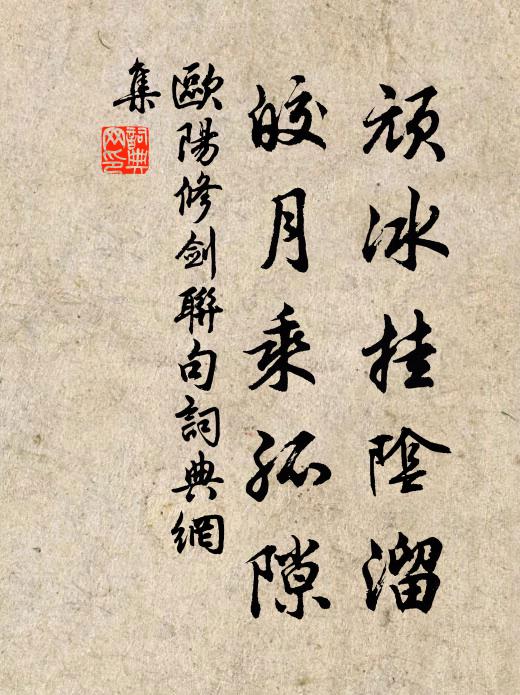 頑冰挂陰溜
皎月乘孤隙
歐陽修劍聯句詞典網
集
詞典網印